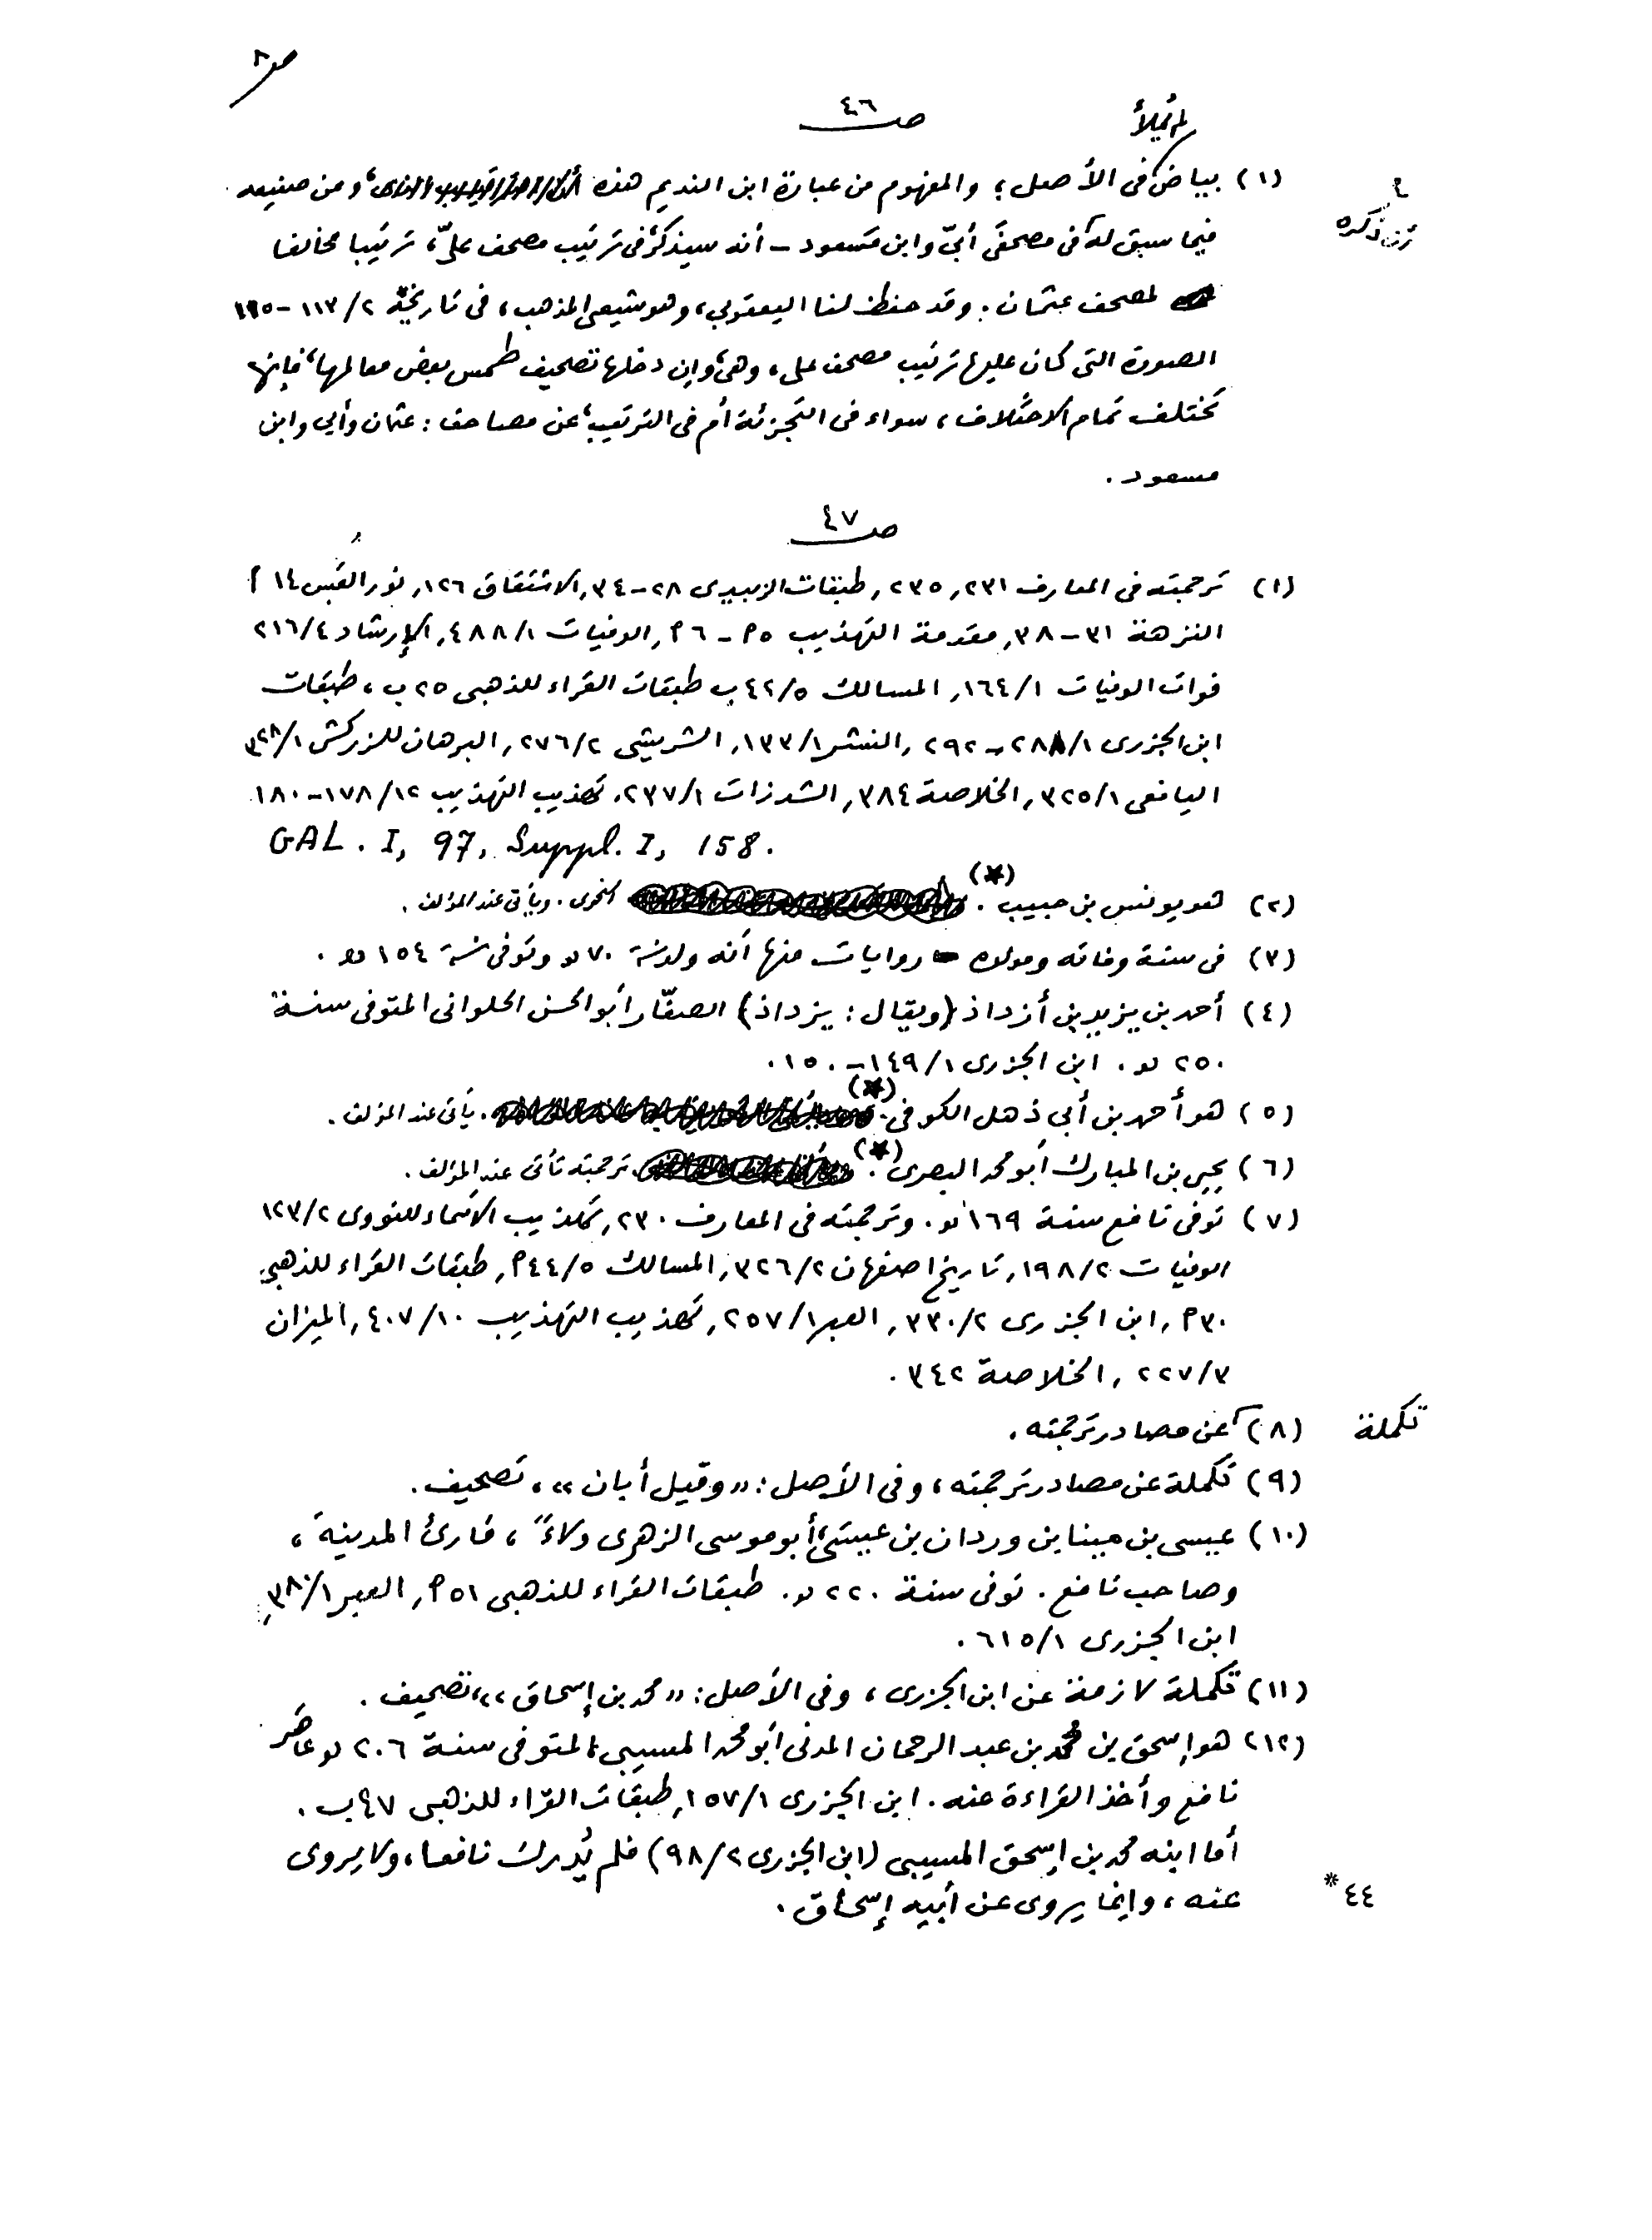 ص ٨
ص ٤٦
لم تُملأ
(١) بياض فى الأصل؛ والمفهوم من عبارة ابن النديم هذه، ومن صنيعه
فيما سبق له فى مصحفَى أبىّ وابن مسعود - أنه سيذكر فى ترتيب مصحف علىّ، ترتيبا مخالفا
لمصحف عثمان. وقد حفظ لنا اليعقوبي، وهو شيعى المذهب، فى تاريخه ٢/ ١١٣ -
الصورة التى كان عليها ترتيب مصحف على، وهى، وإن دخلها تصحيف طمس بعض معالمها، فإنها
تختلف تمام الاختلاف، سواء فى التجزئة أم فى الترتيب، عن مصاحف: عثمان وأبي وابن
مسعود.
ص ٤٧
(١) ترجمته فى المعارف ٢٣١, ٢٣٥, طبقات الزبيدى ٢٨-٣٤, الاشتقاق ١٢٦, نور القبس ١٤ م
النزهة ٣١-٣٨, مقدمة التهذيب ٥م-٦م, الوفيات ١/ ٤٨٨, الإرشاد ٤/ ٢١٦
فوات الوفيات ١/ ١٦٤, المسالك ٥/ ٤٢ب طبقات القراء للذهبى ٢٥ ب، طبقات
ابن الجزرى ١/ ٢٨٨-٢٩٢, النشر ١/ ١٣٣, الشريشى ٢/ ٢٧٦, البرهان للزركشى ١/ ٣٢٨
اليافعى ١/ ٣٢٥, الخلاصة ٣٨٤, الشذرات ١/ ٢٣٧. تهذيب التهذيب ١٢/ ١٧٨-١٨٠.
GAL. I, 97, Suppl. I, 158.
(٢) هو يونس بن حبيب (*). النحوى. ويأتى عند المؤلف.
(٣) فى سنة وفاته ومولده روايات منها أنه ولد سنة ٧٠ هـ وتوفى سنة ١٥٤ هـ.
(٤) أحمد بن يزيد بن أزداذ (ويقال: يزداذ) الصفّار أبو الحسن الحلوانى المتوفى سنة
٢٥٠ هـ. ابن الجزرى ١/ ١٤٩-١٥٠.
(٥) هو أحمد بن أبي ذهل الكوفى (*). يأتى عند المؤلف.
(٦) يحيى بن المبارك أبو محمد البصرى (*). ترجمته تأتى عند المؤلف.
(٧) توفى نافع سنة ١٦٩ هـ. وترجمته فى المعارف ٢٣٠, تهذيب الأسماء للنووى ٢/ ١٢٣
الوفيات ٢/ ١٩٨, تاريخ اصفهان ٢/ ٣٢٦, المسالك ٥/ ٤٤م, طبقات القراء للذهبي
٣٠م, ابن الجزرى ٢/ ٣٣٠, العبر ١/ ٢٥٧, تهذيب التهذيب ١٠/ ٤٠٧, الميزان
٣/ ٢٢٧, الخلاصة ٣٤٢.
(٨) تكملة عن مصادر ترجمته.
(٩) تكملة عن مصادر ترجمته، وفى الأصل: «وقيل أبان»، تصحيف.
(١٠) عيسى بن مينا بن وردان بن عيسى، أبو موسى الزهرى ولاءً، قارئ المدينة،
وصاحب نافع. توفى سنة ٢٢٠ هـ. طبقات القراء للذهبى ٥١م, العبر ١/ ٣٨٠,
ابن الجزرى ١/ ٦١٥.
(١١) تكملة لازمة عن ابن الجزرى، وفى الأصل: «محمد بن إسحاق»، تصحيف.
(١٢) هو إسحق بن محمد بن عبد الرحمان المدنى أبو محمد المسيبى، المتوفى سنة ٢٠٦ هـ عاصر
نافع وأخذ القراءة عنه. ابن الجزرى ١/ ١٥٧, طبقات القرّاء للذهبى ٤٧ب.
أما ابنه محمد بن إسحق المسيبى (ابن الجزرى ٢/ ٩٨) فلم يُدرك نافعا، ولا يروى
عنه، وإنما يروى عن أبيه إسحاق.
٤٤ *